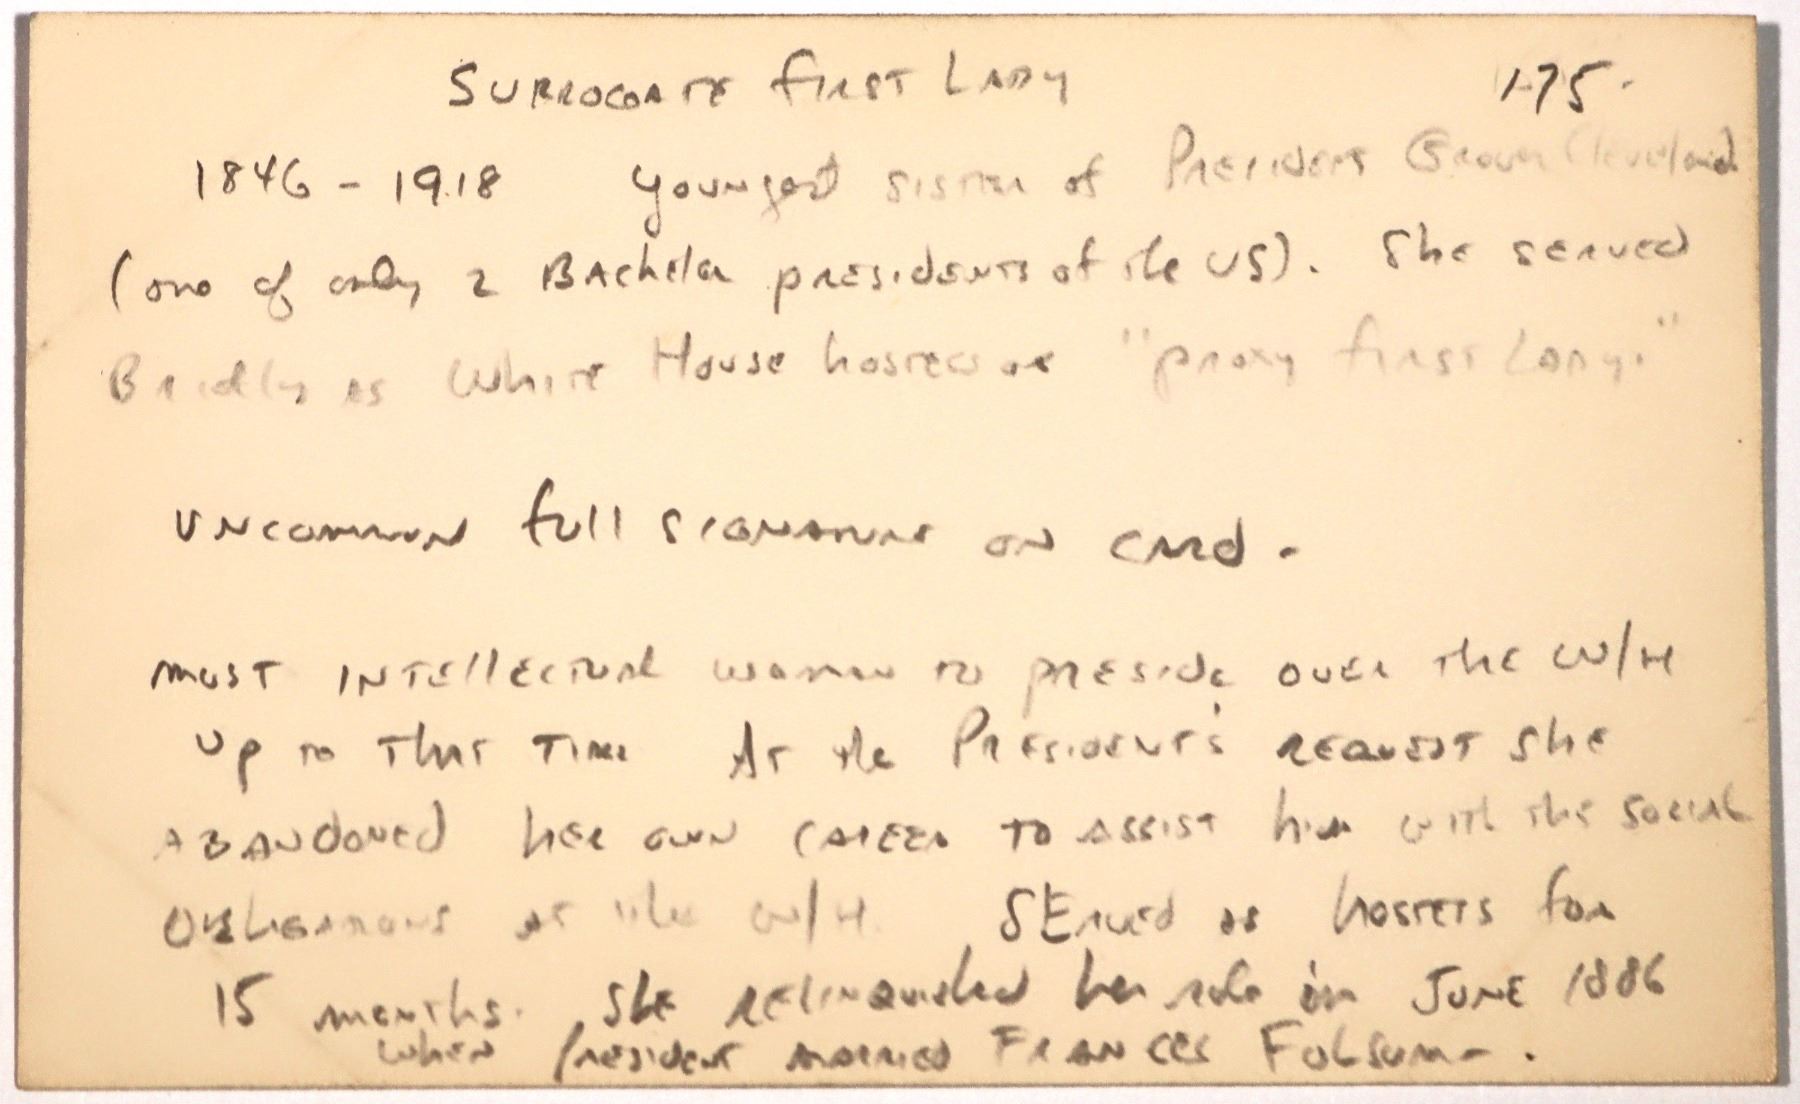 Surrogate First Lady 175.
1846 - 1918 youngest sister of President Grover Cleveland
(one of only 2 Bachelor presidents of the US). She served
Briefly as White House hostess or "proxy first Lady."
uncommon full signature on card.
most intellectual woman to preside over the W/H
up to that time At the President's request she
abandoned her own career to assist him with the social
obligations at the W/H. Served as hostess for
15 months. She relinquished her role in June 1886
when President married Frances Folsum.